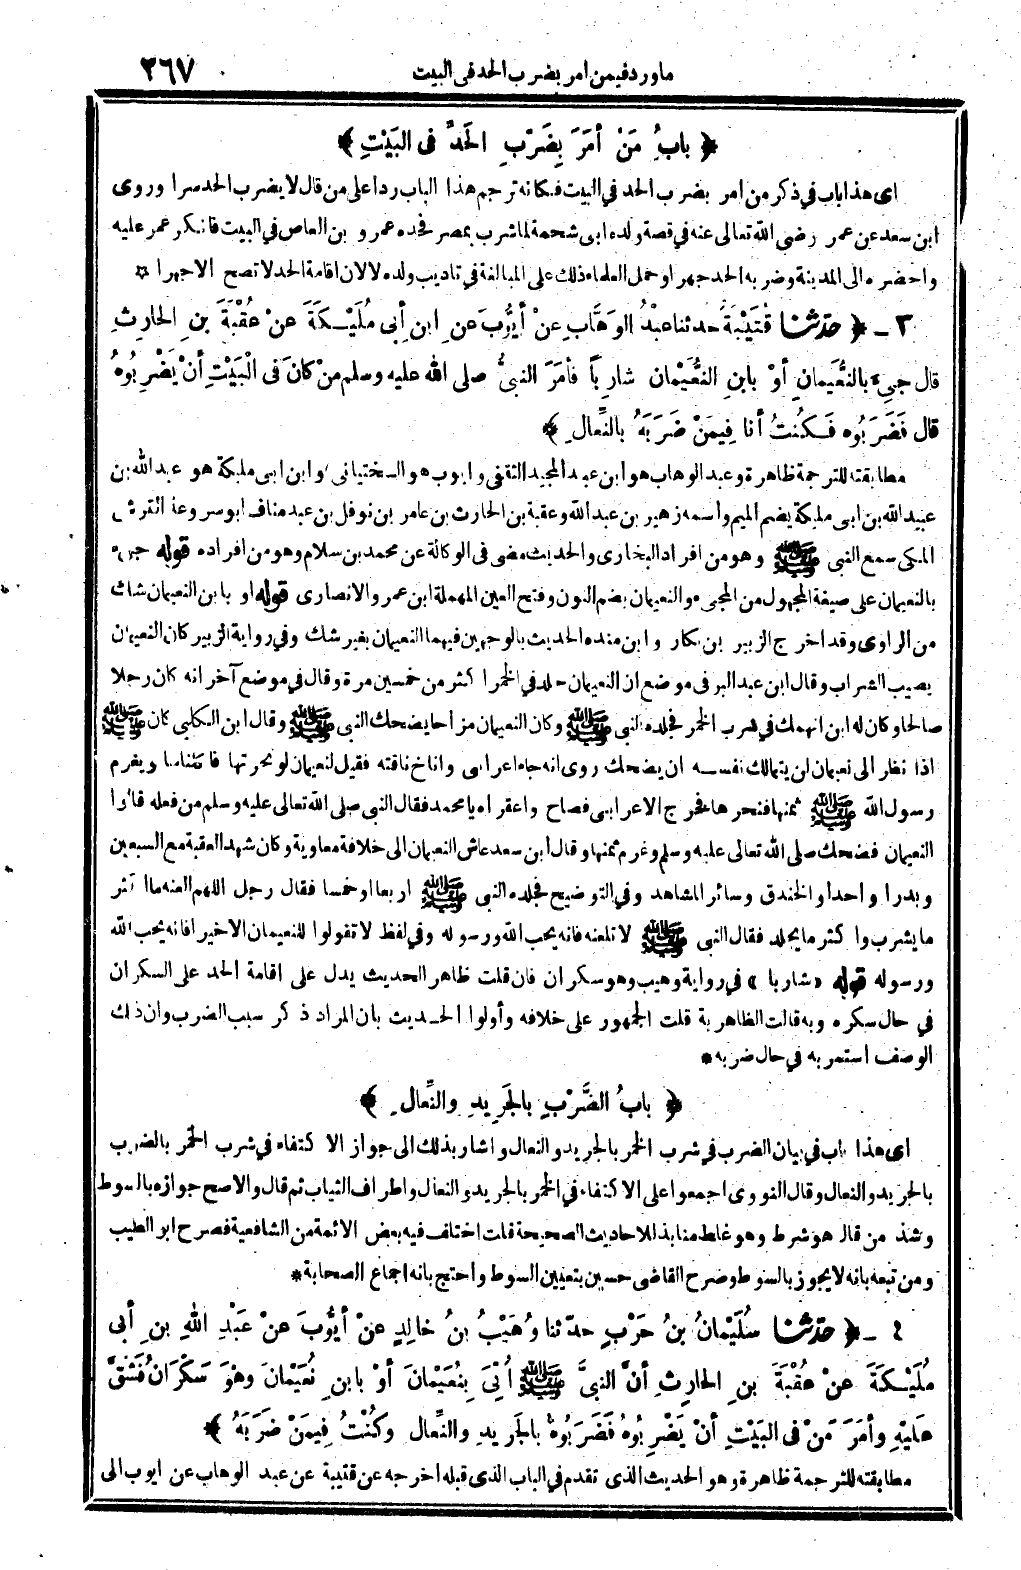 ماورد فيمن امر بضرب الحد في البيت ٢٦٧
﴿ بابُ مَنْ أمَرَ بِضَرْبِ الحَدِّ فى البَيْتِ ﴾
اى هذا باب في ذكر من امر بضرب الحد في البيت فكانه ترجم هذا الباب ردا على من قال لا يضرب الحد سرا وروى
ابن سعد عن عمر رضى الله تعالى عنه في قصة ولده ابى شحمة لما شرب بمصر فحده عمرو بن العاص في البيت فانكر عمر عليه
واحضره الى المدينة وضربه الحد جهرا وحمل العلماء ذلك على المبالغة في تاديب ولده لا لان اقامة الحد لا تصح الا جهرا ✩
٣ ـ ﴿ حدّثنا قُتَيْبَةُ حدثنا عبْدُ الوَهَّابِ عنْ أيُّوبَ عنِ ابنِ أبى مُلَيْـكَةَ عنْ عُقْبَةَ بنِ الحارِثِ
قال جِىءَ بالنُّعَيمانِ أوْ بابنِ النُّعَيْمان شارِباً فأمَرَ النبىُّ صلى الله عليه وسلم منْ كانَ فى الْبَيْتِ أنْ يَضْرِبُوهُ
قال فَضَرَبُوه فَـكُنْتُ أنا فِيمَنْ ضَرَبَهُ بالنِّعالِ ﴾
مطابقته للترجمة ظاهرة وعبد الوهاب هو ابن عبد المجيد الثقفى وايوب هو السختيانى وابن ابى مليكة هو عبد الله بن
عبيد الله بن ابى مليكة بضم الميم واسمه زهير بن عبد الله وعقبة بن الحارث بن عامر بن نوفل بن عبد مناف ابو سروعة القرشى
المكى سمع النبى ﷺ وهو من افراد البخارى والحديث مضى فى الوكالة عن محمد بن سلام وهو من افراده قوله جىء
بالنعيمان على صيغة المجهول من المجىء والنعيمان بضم النون وفتح العين المهملة ابن عمرو الانصارى قوله او بابن النعيمان شك
من الراوى وقد اخرج الزبير بن بكار وابن منده الحديث بالوجهين فيهما النعيمان بغير شك وفي رواية الزبير كان النعيمان
يصيب الشراب وقال ابن عبد البر فى موضع ان النعيمان جلد في الخمر اكثر من خمسين مرة وقال في موضع آخر انه كان رجلا
صالحا وكان له ابن انهمك في شرب الخمر فجلده النبى ﷺ وكان النعيمان مزاحا يضحك النبى ﷺ وقال ابن الكلبى كان ﷺ
اذا نظر الى نعيمان لن يتمالك نفسـه ان يضحك روى انه جاء اعرابى واناخ ناقته فقيل لنعيمان لو نحرتها فاكلناها ويغرم
رسول الله ﷺ ثمنها فنحرها فخرج الاعرابى فصاح واعقراه يا محمد فقال النبى صلى الله تعالى عليه وسلم من فعله قالوا
النعيمان فضحك صلى الله تعالى عليه وسلم وغرم ثمنها وقال ابن سعد عاش النعيمان الى خلافة معاوية وكان شهد العقبة مع السبعين
وبدرا واحدا والخندق وسائر المشاهد وفي التوضيح فجلده النبى ﷺ اربعا او خمسا فقال رجل اللهم العنه ما اكثر
ما يشرب واكثر ما يجلد فقال النبى ﷺ لا تلعنه فانه يحب الله ورسوله وفي لفظ لا تقولوا للنعيمان الا خيرا فانه يحب الله
ورسوله قوله «شاربا» في رواية وهيب وهو سكران فان قلت ظاهر الحديث يدل على اقامة الحد على السكران
في حال سكره وبه قالت الظاهرية قلت الجمهور على خلافه وأولوا الحـديث بان المراد ذكر سبب الضرب وان ذلك
الوصف استمر به في حال ضربه*
﴿ بابُ الضَّرْبِ بالجَرِيدِ والنِّعالِ ﴾
اى هذا باب في بيان الضرب في شرب الخمر بالجريد والنعال واشار بذلك الى جواز الاكتفاء في شرب الخمر بالضرب
بالجريد والنعال وقال النووى اجمعوا على الاكتفاء في الخمر بالجريد والنعال واطراف الثياب ثم قال والاصح جوازه بالسوط
وشذ من قال هو شرط وهو غلط منابذ للاحاديث الصحيحة قلت اختلف فيه بعض الائمة من الشافعية فصرح ابو الطيب
ومن تبعه بانه لا يجوز بالسوط وصرح القاضى حسين بتعيين السوط واحتج بانه اجماع الصحابة*
٤ ـ ﴿ حدّثنا سُلَيْمانُ بنُ حَرْبٍ حدّثنا وُهَيْبُ بنُ خالِدٍ عنْ أيُّوبَ عنْ عَبْدِ اللهِ بنِ أبى
مُلَيْـكَةَ عنْ عُقْبَةَ بنِ الحارِثِ أنَّ النبىَّ ﷺ اُتِىَ بِنُعَيْمانَ أوْ بابنِ نُعَيْمانَ وهْوَ سَكْرَانُ فَشَقَّ
عليْهِ وأمَرَ مَنْ فى البَيْتِ أنْ يَضْرِبُوهُ فَضَرَبُوهُ بالجَرِيدِ والنِّعال وكُنْتُ فِيمَنْ ضَرَبَهُ ﴾
مطابقته للترجمة ظاهرة وهو الحديث الذى تقدم في الباب الذى قبله اخرجه عن قتيبة عن عبد الوهاب عن ايوب الى